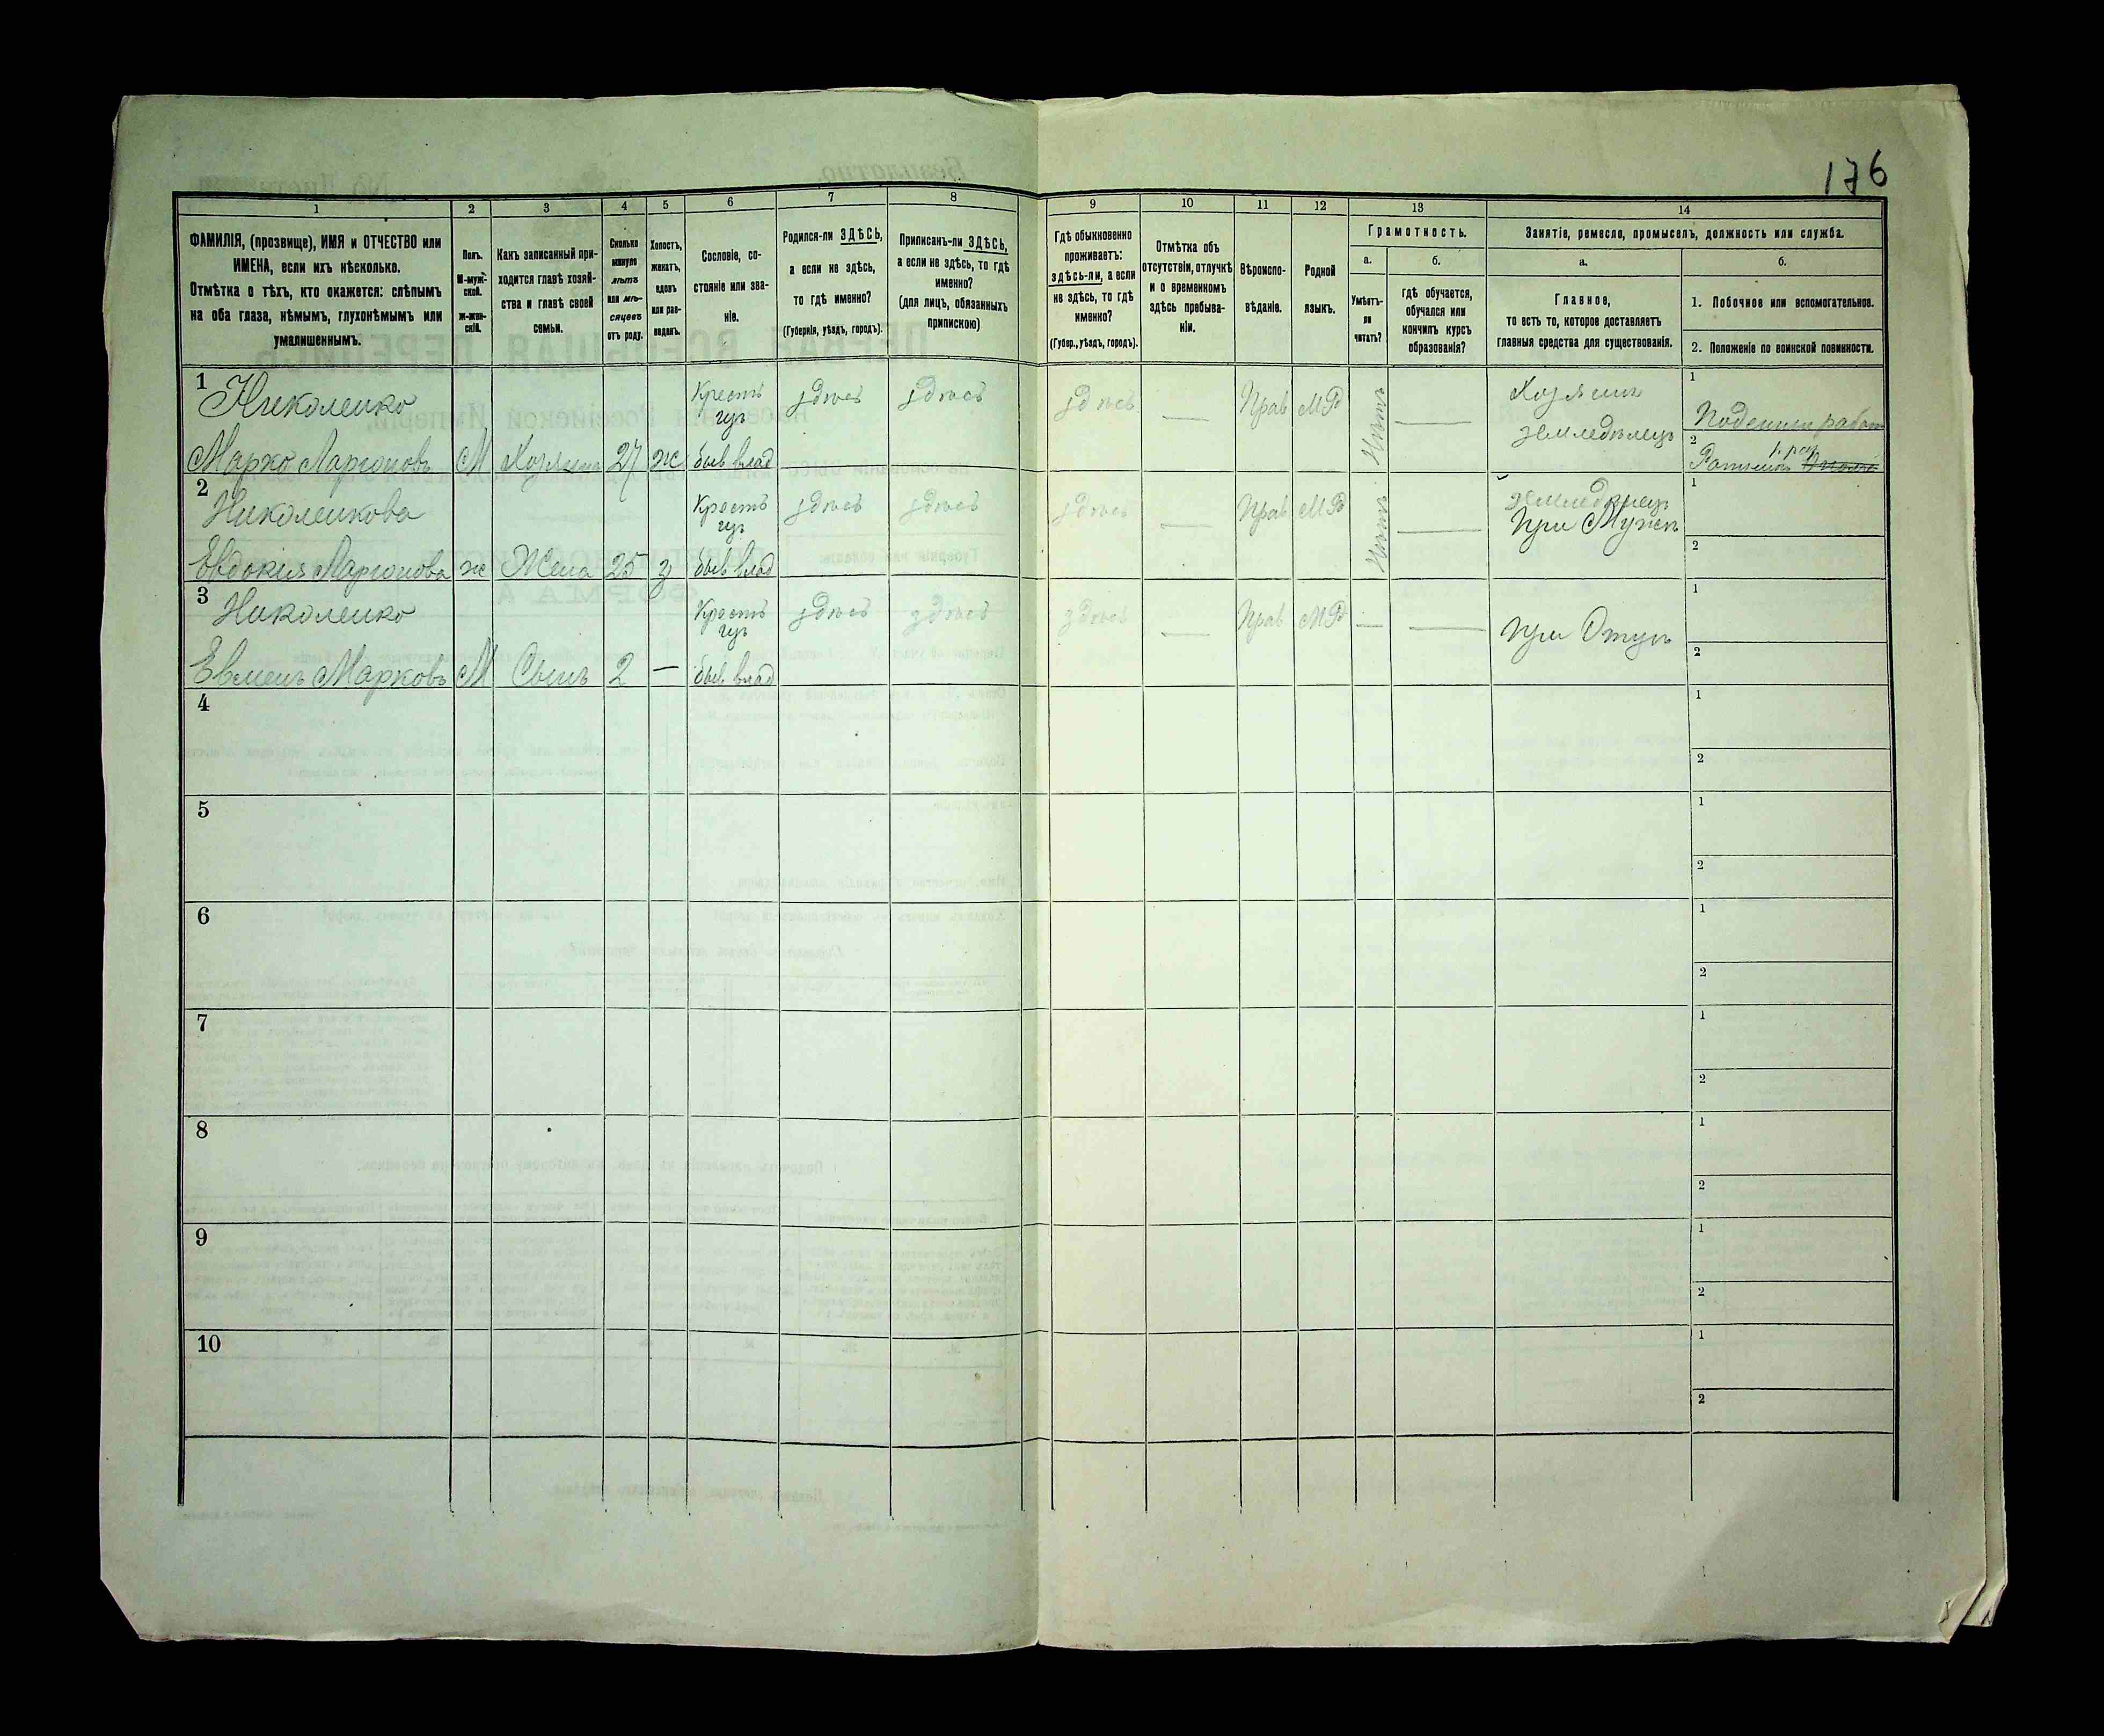 176
1
2
3
4
5
6
7
8
9
10
11
12
13
14
ФАМИЛІЯ, (прозвище), ИМЯ и ОТЧЕСТВО или
ИМЕНА, если ихъ нѣсколько.
Отмѣтка о тѣхъ, кто окажется: слѣпымъ
на оба глаза, нѣмымъ, глухонѣмымъ или
умалишеннымъ.
Полъ.
М-муж-
ской.
ж-жен-
скій.
Какъ записанный при-
ходится главѣ хозяй-
ства и главѣ своей
семьи.
Сколько
минуло
лѣтъ
или мѣ-
сяцевъ
отъ роду.
Холостъ,
женатъ,
вдовъ
или раз-
веденъ.
Сословіе, со-
стояніе или зва-
ніе.
Родился-ли ЗДѢСЬ,
а если не здѣсь,
то гдѣ именно?
(Губернія, уѣздъ, городъ).
Приписанъ-ли ЗДѢСЬ,
а если не здѣсь, то гдѣ
именно?
(для лицъ, обязанныхъ
припискою)
Гдѣ обыкновенно
проживаетъ:
здѣсь-ли, а если
не здѣсь, то гдѣ
именно?
(Губер., уѣздъ, городъ).
Отмѣтка объ
отсутствіи, отлучкѣ
и о временномъ
здѣсь пребыва-
ніи.
Вѣроиспо-
вѣданіе.
Родной
языкъ.
Грамотность.
а.
Умѣетъ-
ли
читать?
б.
гдѣ обучается,
обучался или
кончилъ курсъ
образованія?
Занятіе, ремесло, промыселъ, должность или служба.
а.
Главное,
то есть то, которое доставляетъ
главныя средства для существованія.
б.
1. Побочное или вспомогательное.
2. Положеніе по воинской повинности.
1
Николенко
Марко Ларіоновъ
М
Хозяинъ
27
ж
Крестъ
изъ
быв влад
здѣсь
здѣсь
здѣсь
—
Прав
МР
Нѣтъ
—
Хозяинъ
земледѣлецъ
1
Поденщ работ
2
Ратникъ 1 раз
2
Николенкова
Евдокія Ларіонова
ж
Жена
25
з
Крестъ
изъ
быв влад
здѣсь
здѣсь
здѣсь
—
Прав
МР
Нѣтъ
—
земледѣлец
При Мужѣ
1
2
3
Николенко
Евмень Марковъ
М
Сынъ
2
—
Крестъ
изъ
быв влад
здѣсь
здѣсь
здѣсь
—
Прав
МР
—
—
При Отцѣ
1
2
4
1
2
5
1
2
6
1
2
7
1
2
8
1
2
9
1
2
10
1
2